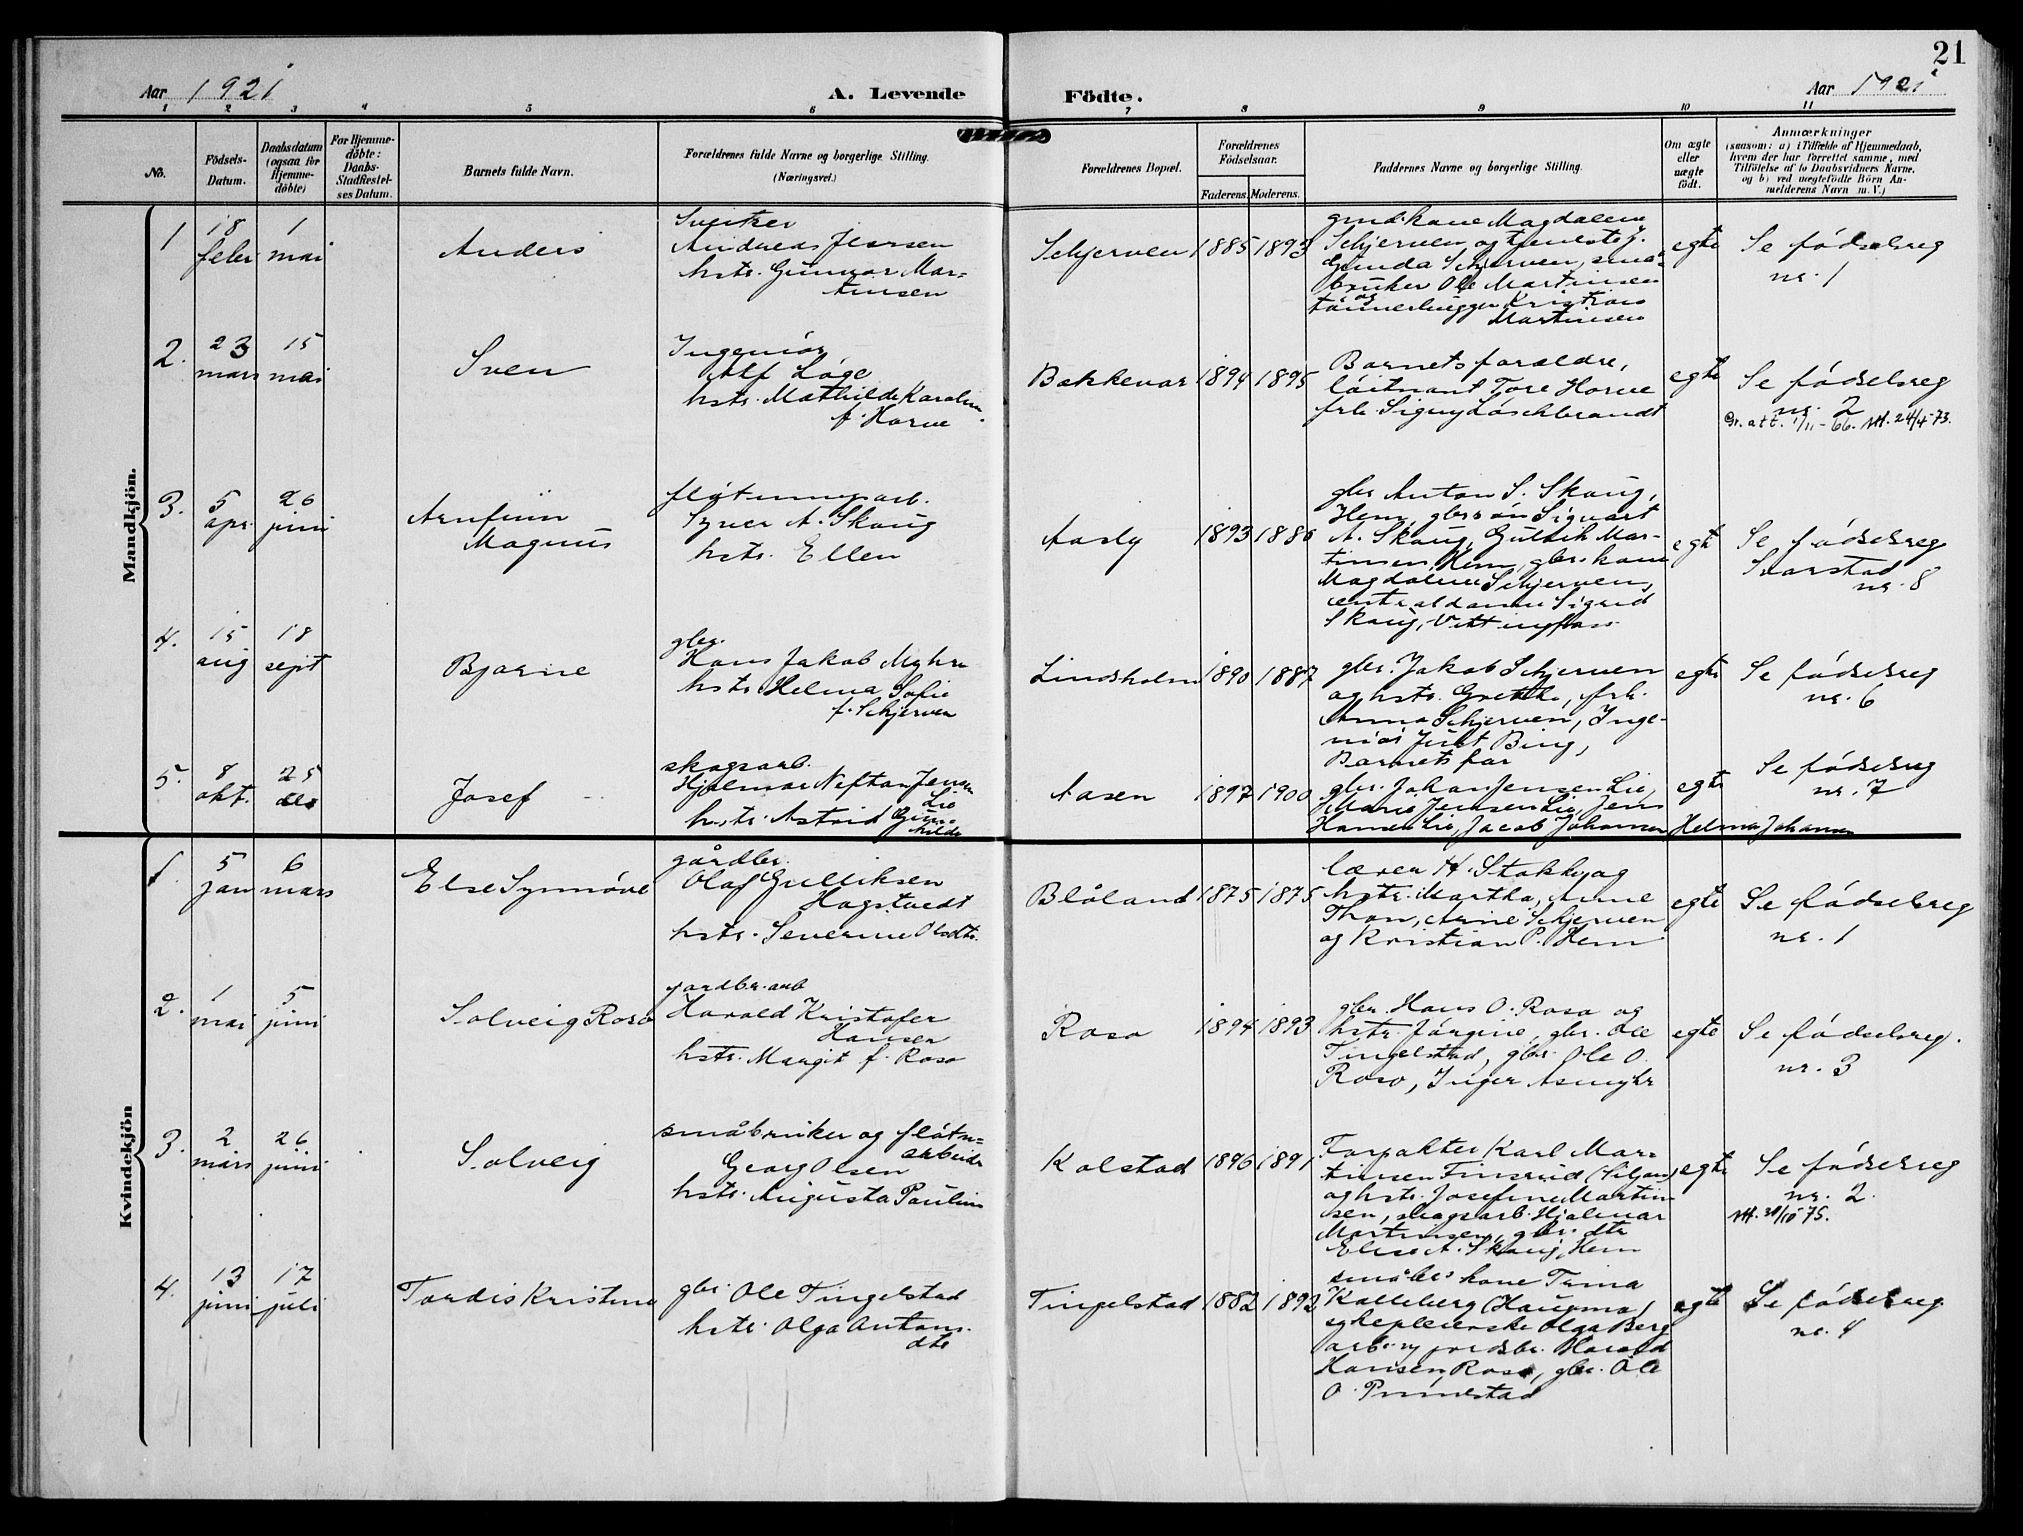 21
Aar 1921 A. Levende Födte. Aar 1921
1 2 3 4 5 6 7 8 9 10 11
No.
Födsels-
Datum.
Daabsdatum
(ogsaa for
Hjemme-
döbte)
For Hjemme-
döbte:
Daabs-
Stadfæstel-
ses Datum.
Barnets fulde Navn.
Forældrenes fulde Navne og borgerlige Stilling.
(Næringsvei.)
Forældrenes Bopæl.
Forældrenes
Födselsaar.
Faderens. Moderens.
Faddernes Navne og borgerlige Stilling.
Om ægte
eller
uægte
födt.
Anmærkninger
(saasom: a) i Tilfælde af Hjemmedaab,
hvem der har forrettet samme, med
Tilföielse af to Daabsvidners Navne.
og b) ved uægtefödte Börn An-
melderens Navn m. V.)
Mandkjön.
1
18
febr
1
mai
Anders
Sveitser
Andreas Iversen
hstr. Gunvor Mar-
tinsen
Schjerven
1885
1893
grndr.kone Magdalena
Schjerven og tjenestej.
Gunda Schjerven, små-
bruker Ole Martinsen
og
tömmerhugger Kristian
Martinsen
egte
Se fódselsreg
nr. 1
2.
23
mars
15
mai
Sven
Ingeniör
Alf Löge
hstr. Mathilde Karoline
f. Horve
Bakkevar
1894
1895
Barnets forældre,
löitnant Tore Horve
frk. Signy Löschbrandt
egte
Se fódselsreg
nr. 2
Gr. att. 1/11-66. Vtt. 24/4-73.
3.
5
apr.
26
juni
Arnfinn
Magnus
flötningsarb.
Syver A. Skaug
hstr. Ellen
Aasly
1893
1886
gbr Anton S. Skaug,
Hem, gbrsön Sigvart
A. Skaug, Gullik Mar-
tinsen, Hem, gbr. kone
Magdalena Schjerven,
centraldame Sigrid
Skaug, Vittingfoss
egte
Se fódselsreg
Svarstad
nr. 8
4.
15
aug
18
sept
Bjarne
gbr.
Hans Jakob Myhre
hstr. Helma Sofie
f. Schjerven
Lindsholm
1890
1887
gbr. Jakob Schjerven
og hstr. Grethe, frk.
Anna Schjerven, Inge-
niör Just Bing,
Barnets far
egte
Se fódselsreg
nr. 6
5.
8
okt.
25
des
Josef
skogsarb.
Hjalmar Neftan Jensen
Lie
hstr. Astrid Gun-
hilde
Aasen
1897
1900
gbr. Johan Jensen Lie,
Marie Jensen Lie, Jens
Hansen Lie, Jacob Johansen Helma Johansen
egte
Se fódselsreg
nr. 7
Kvindekjön
1.
5
jan
6
mars
Else Synnöve
gårdbr.
Olaf Gulliksen
Hagstvedt
hstr. Severine Olsdtr.
Blåland
1875
1875
lærer H. Stokke og
hstr. Martha, Anne
Thon, Arne Schjerven
og Kristian P. Hem
egte
Se fódselsreg
nr. 1
2.
1
mai
5
juni
Solveig Rosa
jordbr. arb
Harald Kristofer
Hansen
hstr. Margit f. Rosa
Rosa
1894
1893
gbr. Hans O. Rosa og
hstr. Jörgine, gbr. Ole
Tingelstad, gbr. Ole O.
Roso, Inger Asmyhr
egte
Se fódselsreg.
nr. 3
3.
2
mars
26
juni
Solveig
småbruker og flötn=
arbeider
Georg Olsen
hstr. Augusta Pauline
Kolstad
1896
1891
Forpakter Karl Mar-
tinsen Finsrud (Siljan)
og hstr. Josefine Martin
sen, skogsarb. Hjalmar
Martinsen, gbr. dtr
Elise A. Skaug, Hem
egte
Se fódselsreg
nr. 2.
Vtt. 30/10-75.
4.
13
juni
17
juli
Tordis Kristine
gbr. Ole Tingelstad
hstr. Olga Antons.
dtr
Tingelstad
1882
1892
småbr. kone Trina
Kalleberg (Haugma)
sykepleierske Olga Berg
arb. og jordbr. Harald
Hansen, Rosa, gbr. Ole
O. Prinnestad
egte
Se fódselsreg
nr. 4